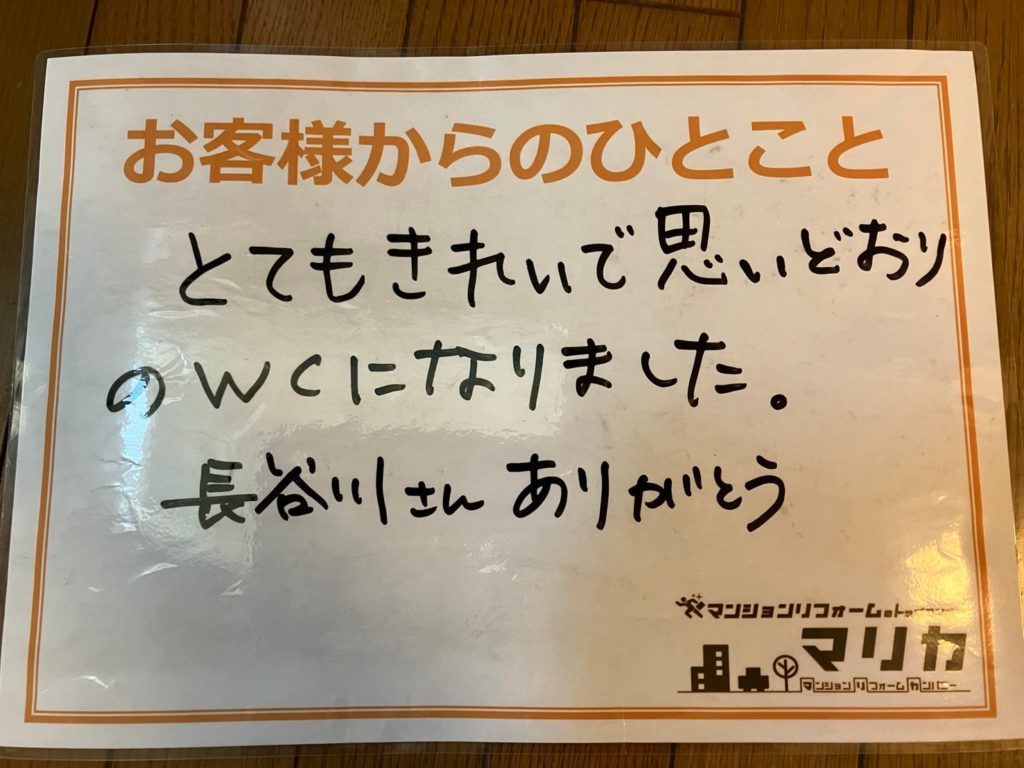 お客様からのひとこと
とてもきれいで思いどおり
のWCになりました。
長谷川さん ありがとう
マンションリフォームのト
マリカ
マンションリフォームカンパニー